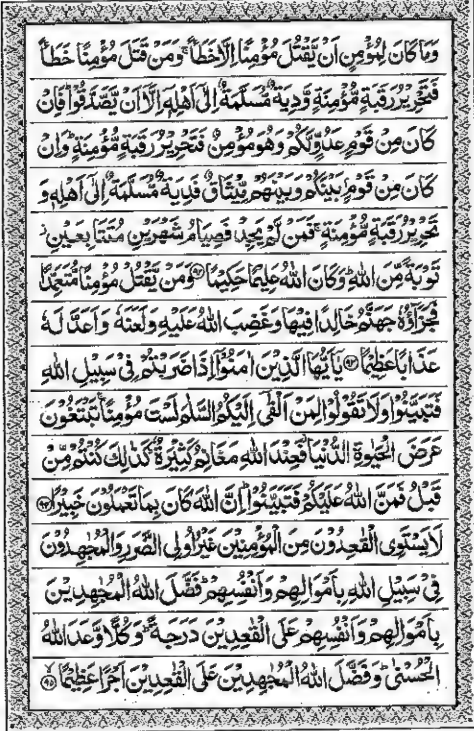 وَمَا كَانَ لِمُؤْمِنٍ اَنْ يَّقْتُلَ مُؤْمِنًا اِلَّا خَطَـًٔا ۚ وَمَنْ قَتَلَ مُؤْمِنًا خَطَـًٔا
فَتَحْرِيْرُ رَقَبَةٍ مُّؤْمِنَةٍ وَّدِيَةٌ مُّسَلَّمَةٌ اِلٰٓى اَهْلِهٖٓ اِلَّآ اَنْ يَّصَّدَّقُوْا ؕ فَاِنْ
كَانَ مِنْ قَوْمٍ عَدُوٍّ لَّكُمْ وَهُوَ مُؤْمِنٌ فَتَحْرِيْرُ رَقَبَةٍ مُّؤْمِنَةٍ ؕ وَاِنْ
كَانَ مِنْ قَوْمٍۭ بَيْنَكُمْ وَبَيْنَهُمْ مِّيْثَاقٌ فَدِيَةٌ مُّسَلَّمَةٌ اِلٰٓى اَهْلِهٖ وَ
تَحْرِيْرُ رَقَبَةٍ مُّؤْمِنَةٍ ۚ فَمَنْ لَّمْ يَجِدْ فَصِيَامُ شَهْرَيْنِ مُتَتَابِعَيْنِ ؗ
تَوْبَةً مِّنَ اللّٰهِ ؕ وَكَانَ اللّٰهُ عَلِيْمًا حَكِيْمًا ﴿۹۲﴾ وَمَنْ يَّقْتُلْ مُؤْمِنًا مُّتَعَمِّدًا
فَجَزَآؤُهٗ جَهَنَّمُ خَالِدًا فِيْهَا وَغَضِبَ اللّٰهُ عَلَيْهِ وَلَعَنَهٗ وَاَعَدَّ لَهٗ
عَذَابًا عَظِيْمًا ﴿۹۳﴾ يٰٓاَيُّهَا الَّذِيْنَ اٰمَنُوْٓا اِذَا ضَرَبْتُمْ فِيْ سَبِيْلِ اللّٰهِ
فَتَبَيَّنُوْا وَلَا تَقُوْلُوْا لِمَنْ اَلْقٰٓى اِلَيْكُمُ السَّلٰمَ لَسْتَ مُؤْمِنًا ۚ تَبْتَغُوْنَ
عَرَضَ الْحَيٰوةِ الدُّنْيَا ؗ فَعِنْدَ اللّٰهِ مَغَانِمُ كَثِيْرَةٌ ؕ كَذٰلِكَ كُنْتُمْ مِّنْ
قَبْلُ فَمَنَّ اللّٰهُ عَلَيْكُمْ فَتَبَيَّنُوْا ؕ اِنَّ اللّٰهَ كَانَ بِمَا تَعْمَلُوْنَ خَبِيْرًا ﴿۹۴﴾
لَا يَسْتَوِى الْقٰعِدُوْنَ مِنَ الْمُؤْمِنِيْنَ غَيْرُ اُولِى الضَّرَرِ وَالْمُجٰهِدُوْنَ
فِيْ سَبِيْلِ اللّٰهِ بِاَمْوَالِهِمْ وَاَنْفُسِهِمْ ؕ فَضَّلَ اللّٰهُ الْمُجٰهِدِيْنَ
بِاَمْوَالِهِمْ وَاَنْفُسِهِمْ عَلَى الْقٰعِدِيْنَ دَرَجَةً ؕ وَكُلًّا وَّعَدَ اللّٰهُ
الْحُسْنٰى ؕ وَفَضَّلَ اللّٰهُ الْمُجٰهِدِيْنَ عَلَى الْقٰعِدِيْنَ اَجْرًا عَظِيْمًا ﴿۹۵﴾